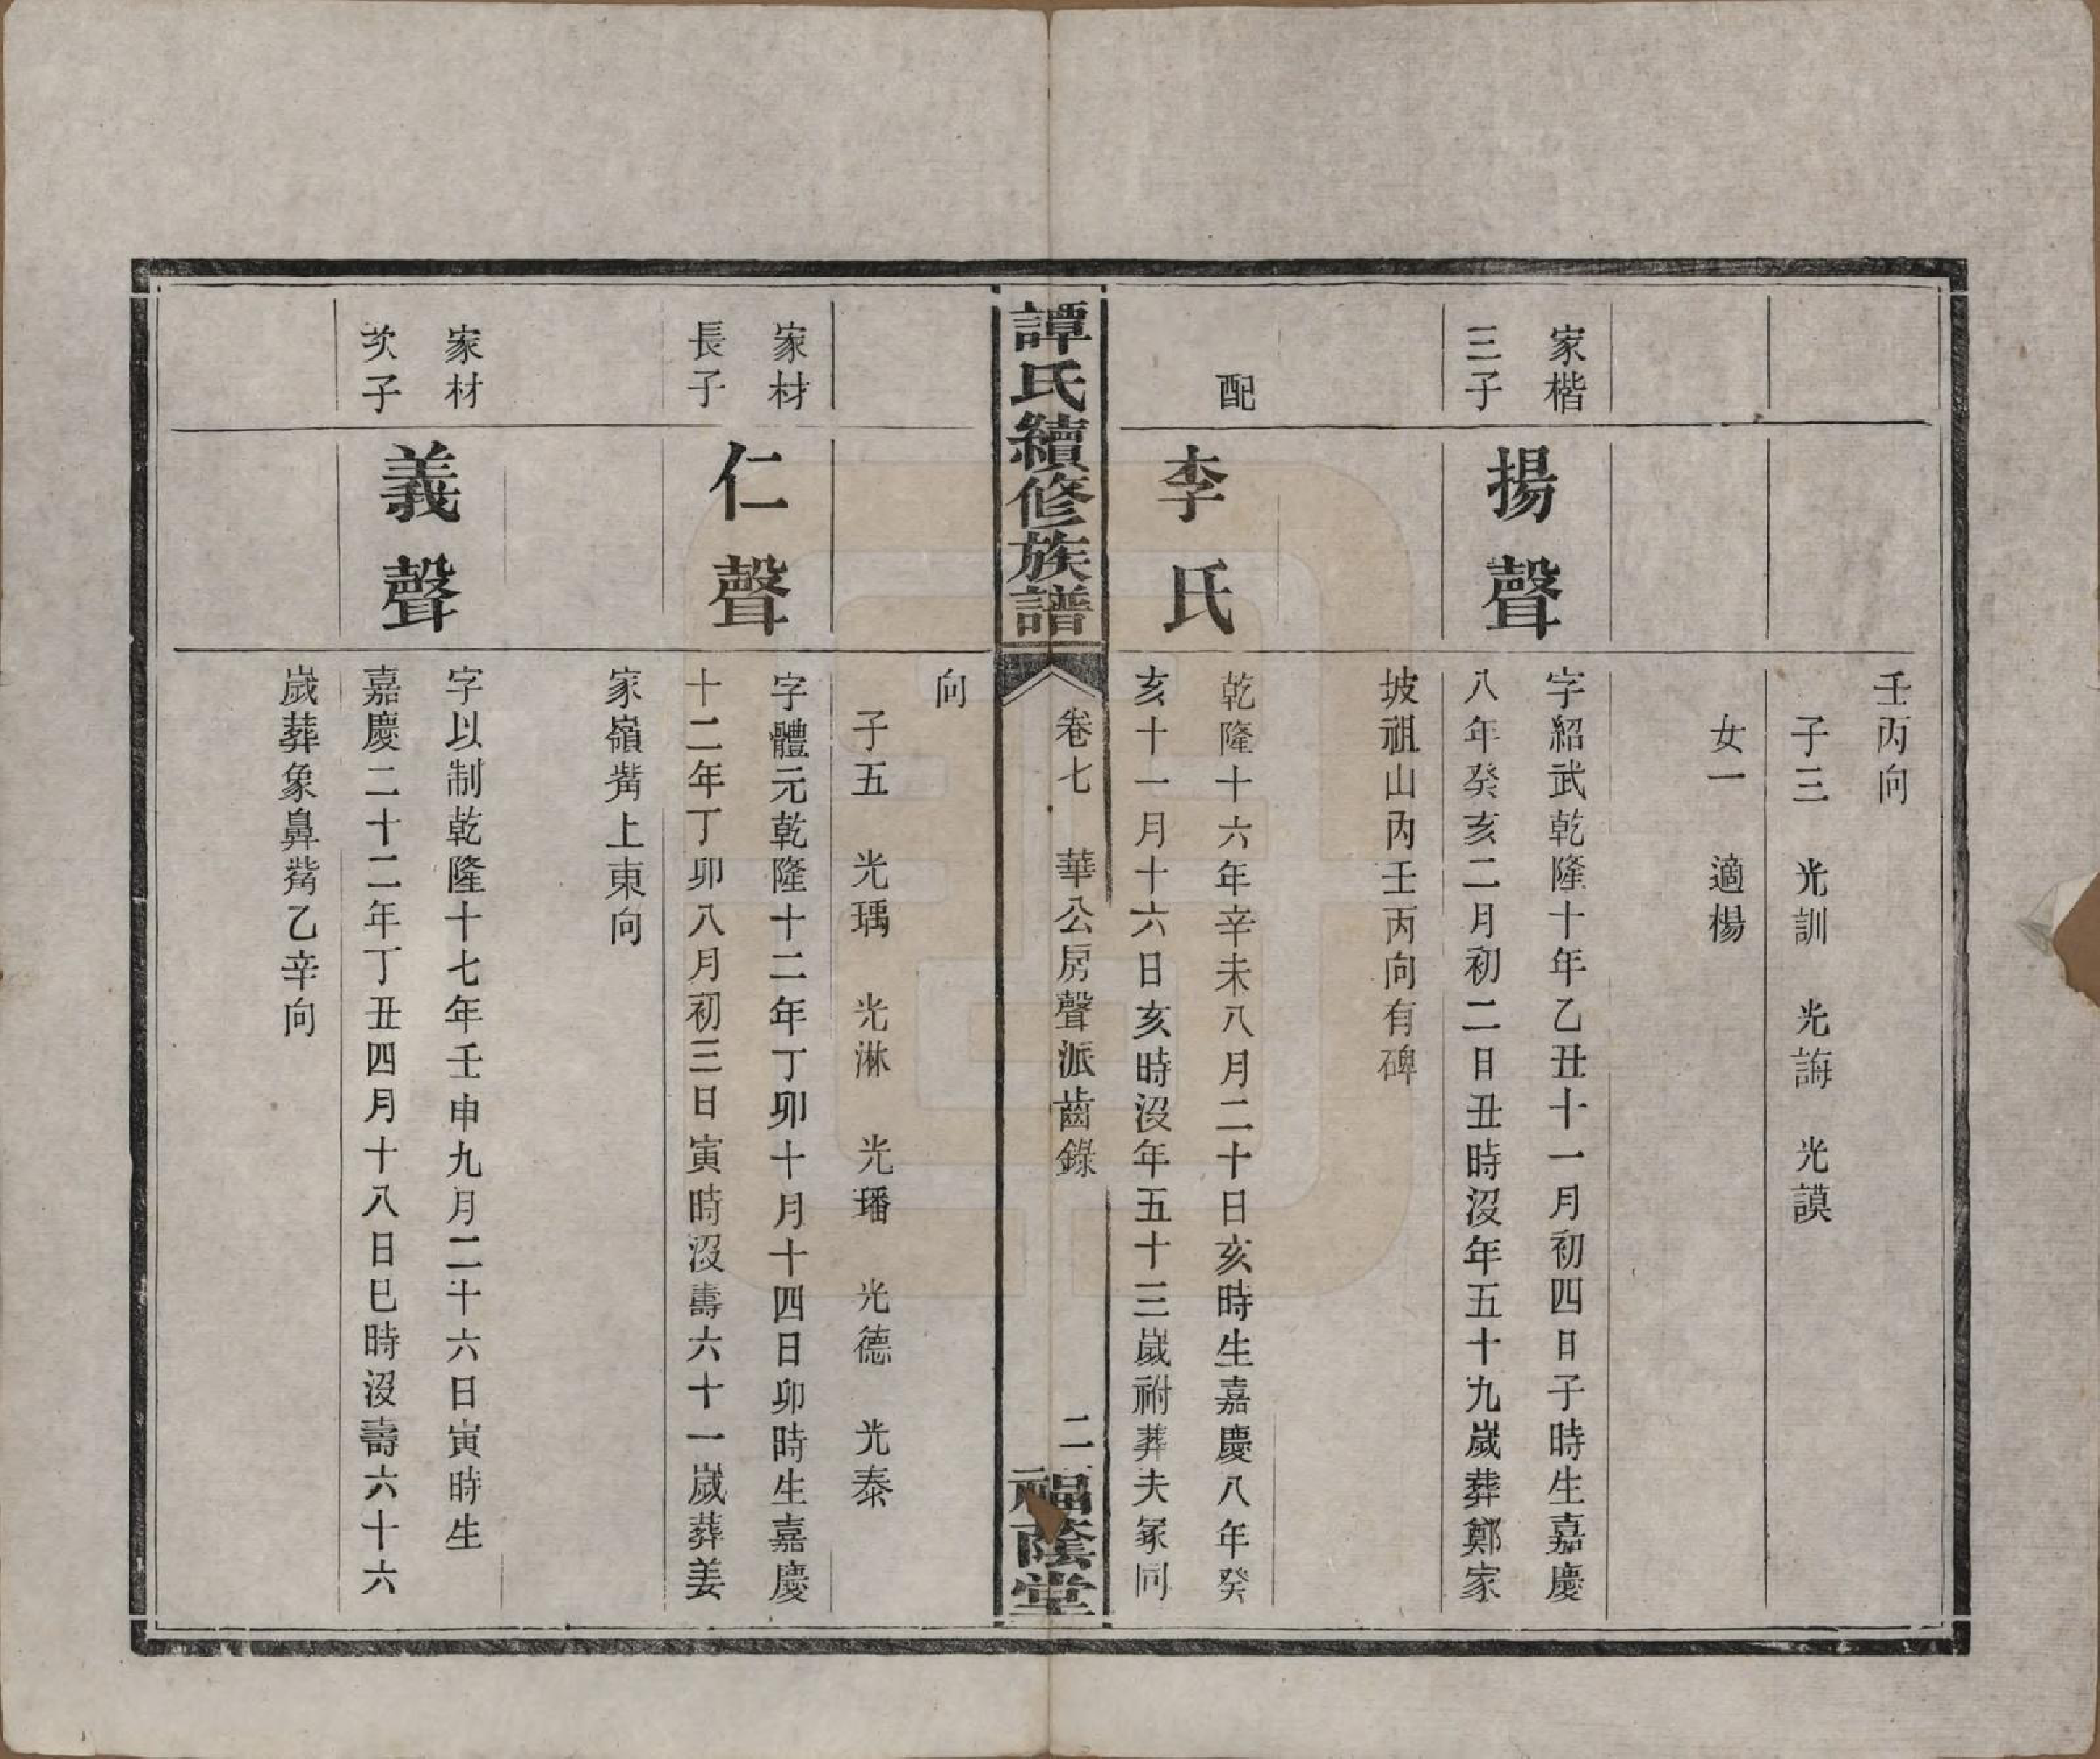 壬丙向
子三　光訓　光誨　光謨
女一　適楊
家楷
三子
揚聲
字紹武乾隆十年乙丑十一月初四日子時生嘉慶
八年癸亥二月初二日丑時沒年五十九歲葬鄭家
坡祖山丙壬丙向有碑
配
李氏
乾隆十六年辛未八月二十日亥時生嘉慶八年癸
亥十一月十六日亥時沒年五十三歲祔葬夫冢同
譚氏續修族譜
卷七　華公房聲派齒錄
二
福蔭堂
向
子五　光瑀　光淋　光璠　光德　光泰
家材
長子
仁聲
字體元乾隆十二年丁卯十月十四日卯時生嘉慶
十二年丁卯八月初三日寅時沒壽六十一歲葬姜
家嶺觜上東向
家材
次子
義聲
字以制乾隆十七年壬申九月二十六日寅時生
嘉慶二十二年丁丑四月十八日巳時沒壽六十六
歲葬象鼻觜乙辛向